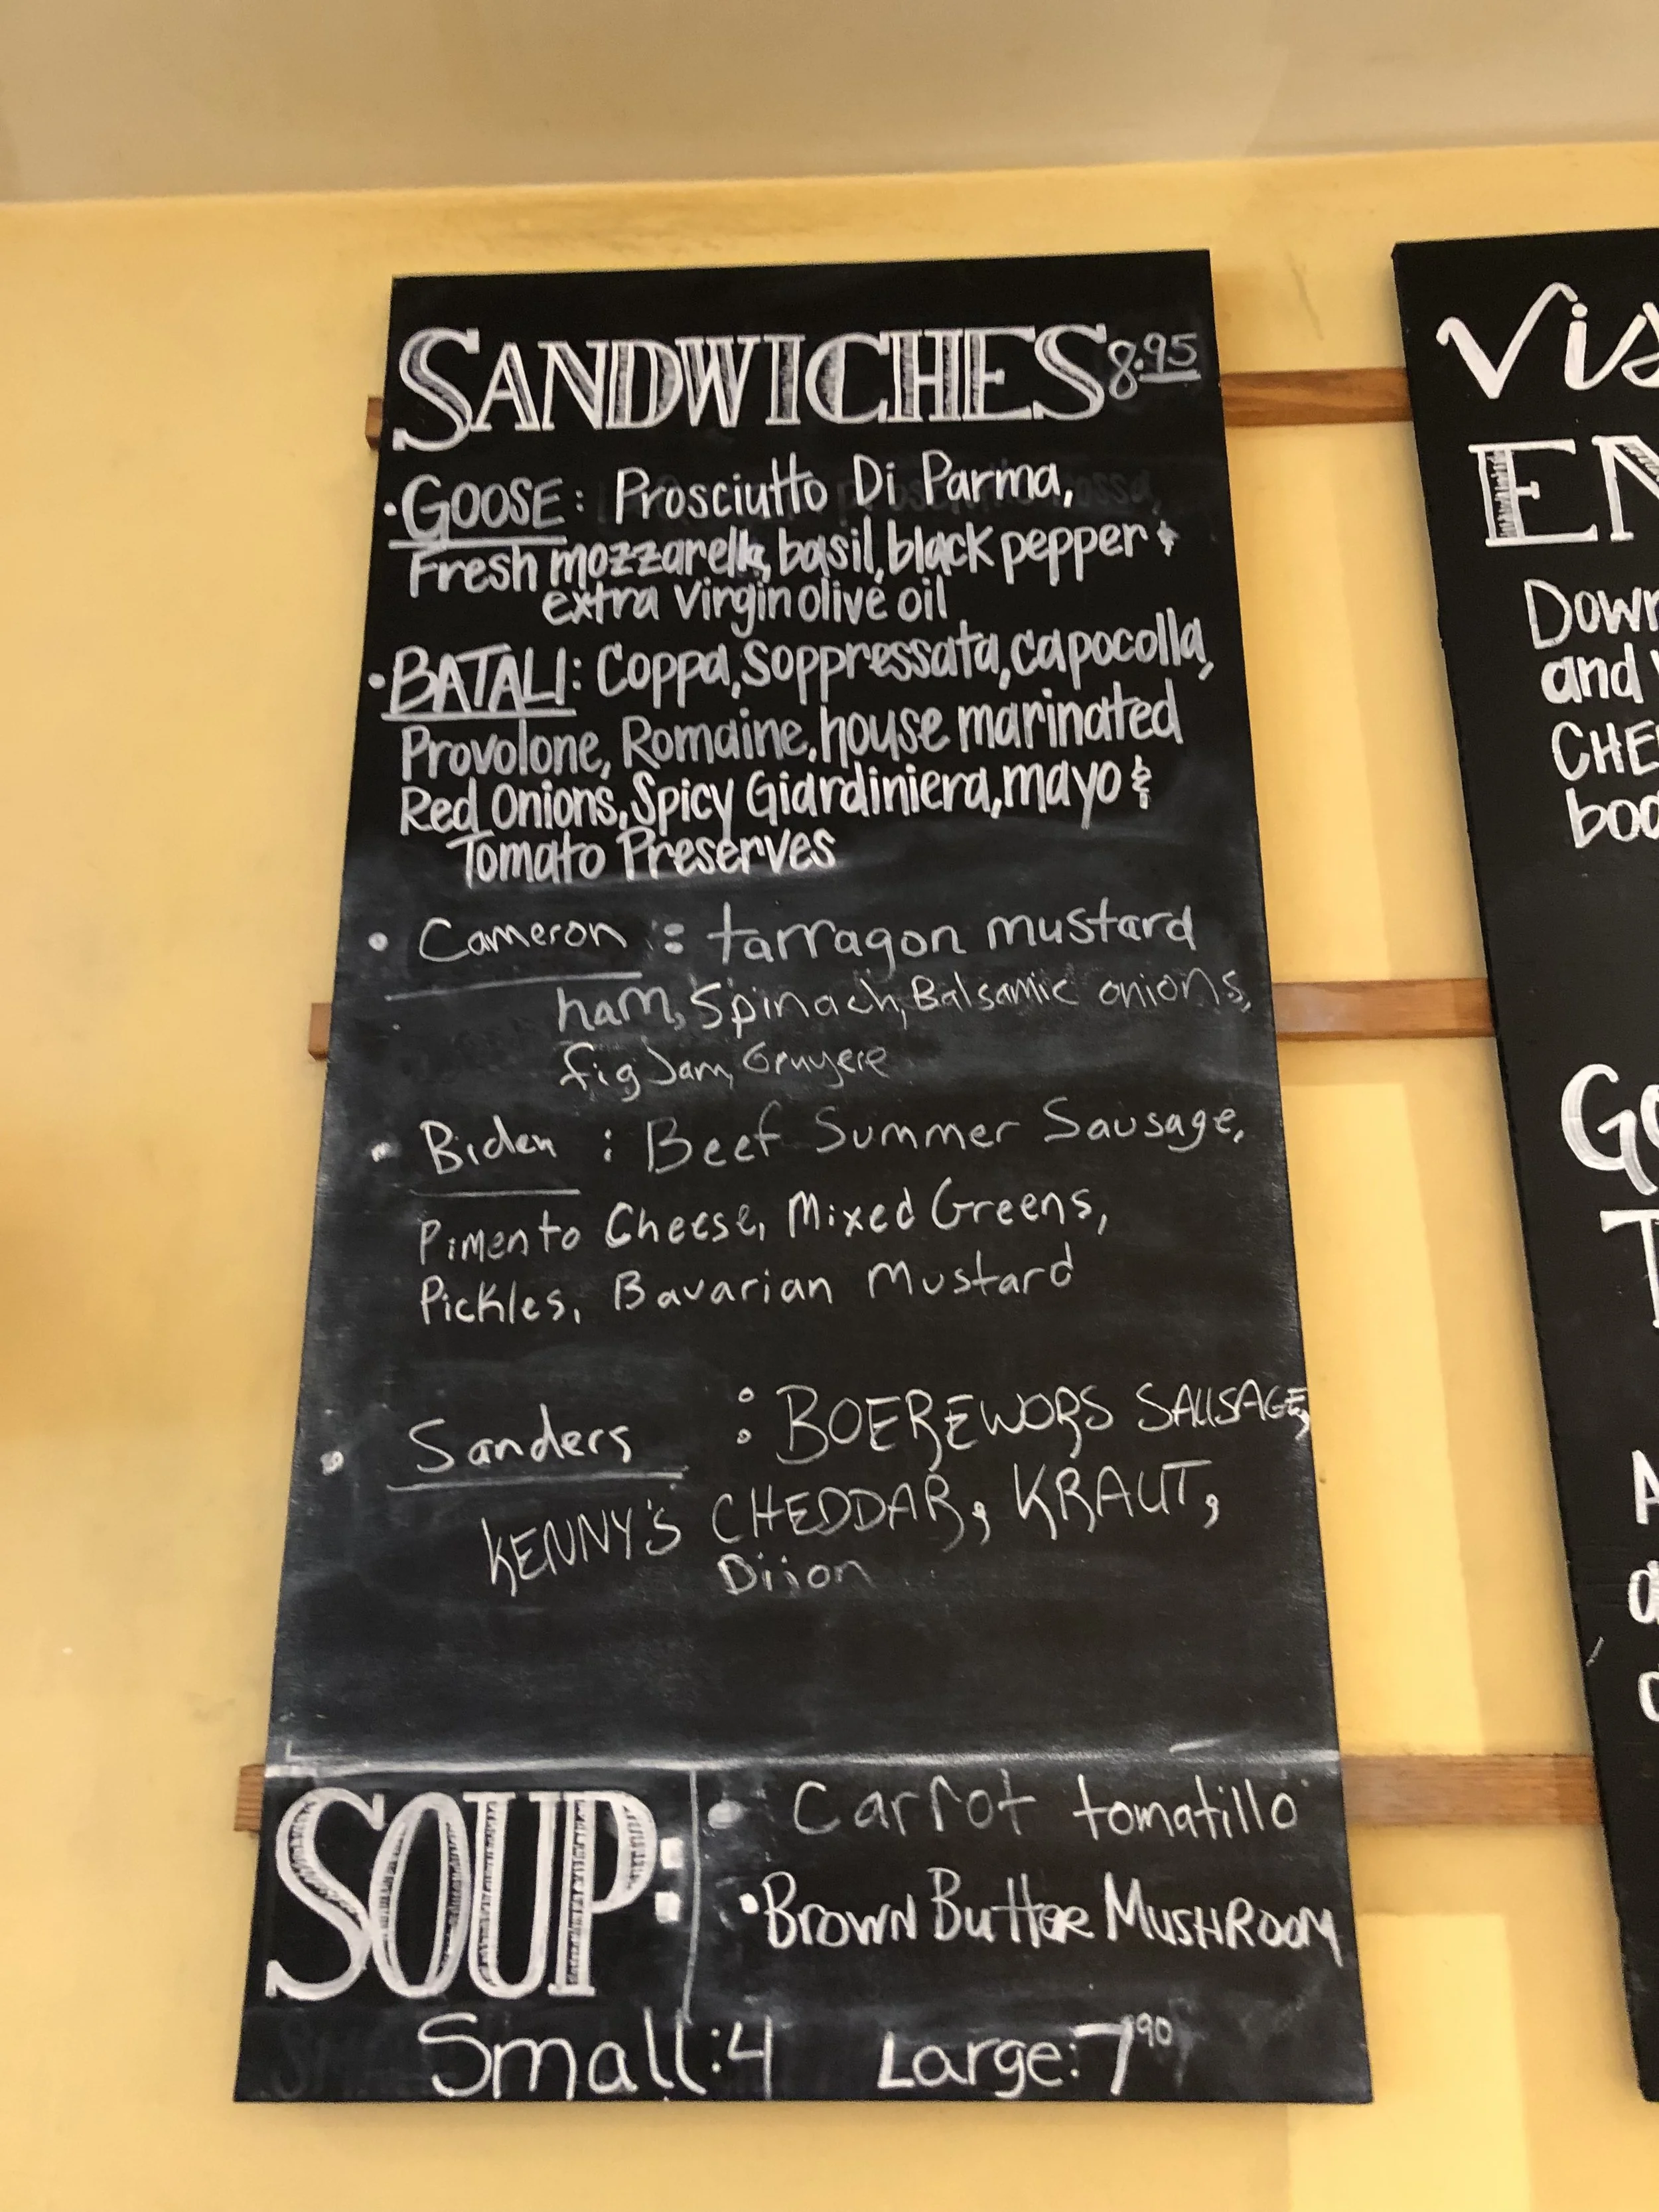 SANDWICHES 8.95
• GOOSE: Prosciutto Di Parma,
Fresh mozzarella, basil, black pepper &
extra Virgin olive oil
• BATALI: Coppa, Soppressata, capocolla,
Provolone, Romaine, house marinated
Red Onions, Spicy Giardiniera, mayo &
Tomato Preserves
• Cameron: tarragon mustard
ham, Spinach, Balsamic onions,
fig Jam, Gruyere
• Biden: Beef Summer Sausage,
Pimento Cheese, Mixed Greens,
Pickles, Bavarian Mustard
• Sanders: BOEREWORS SAUSAGE,
KENNY'S CHEDDAR, KRAUT,
Dijon
SOUP:
• Carrot tomatillo
• Brown Butter MUSHROOM
Small: 4 Large: 7 90
Vis
EN
Down
and
CHE
boa
Go
T
A